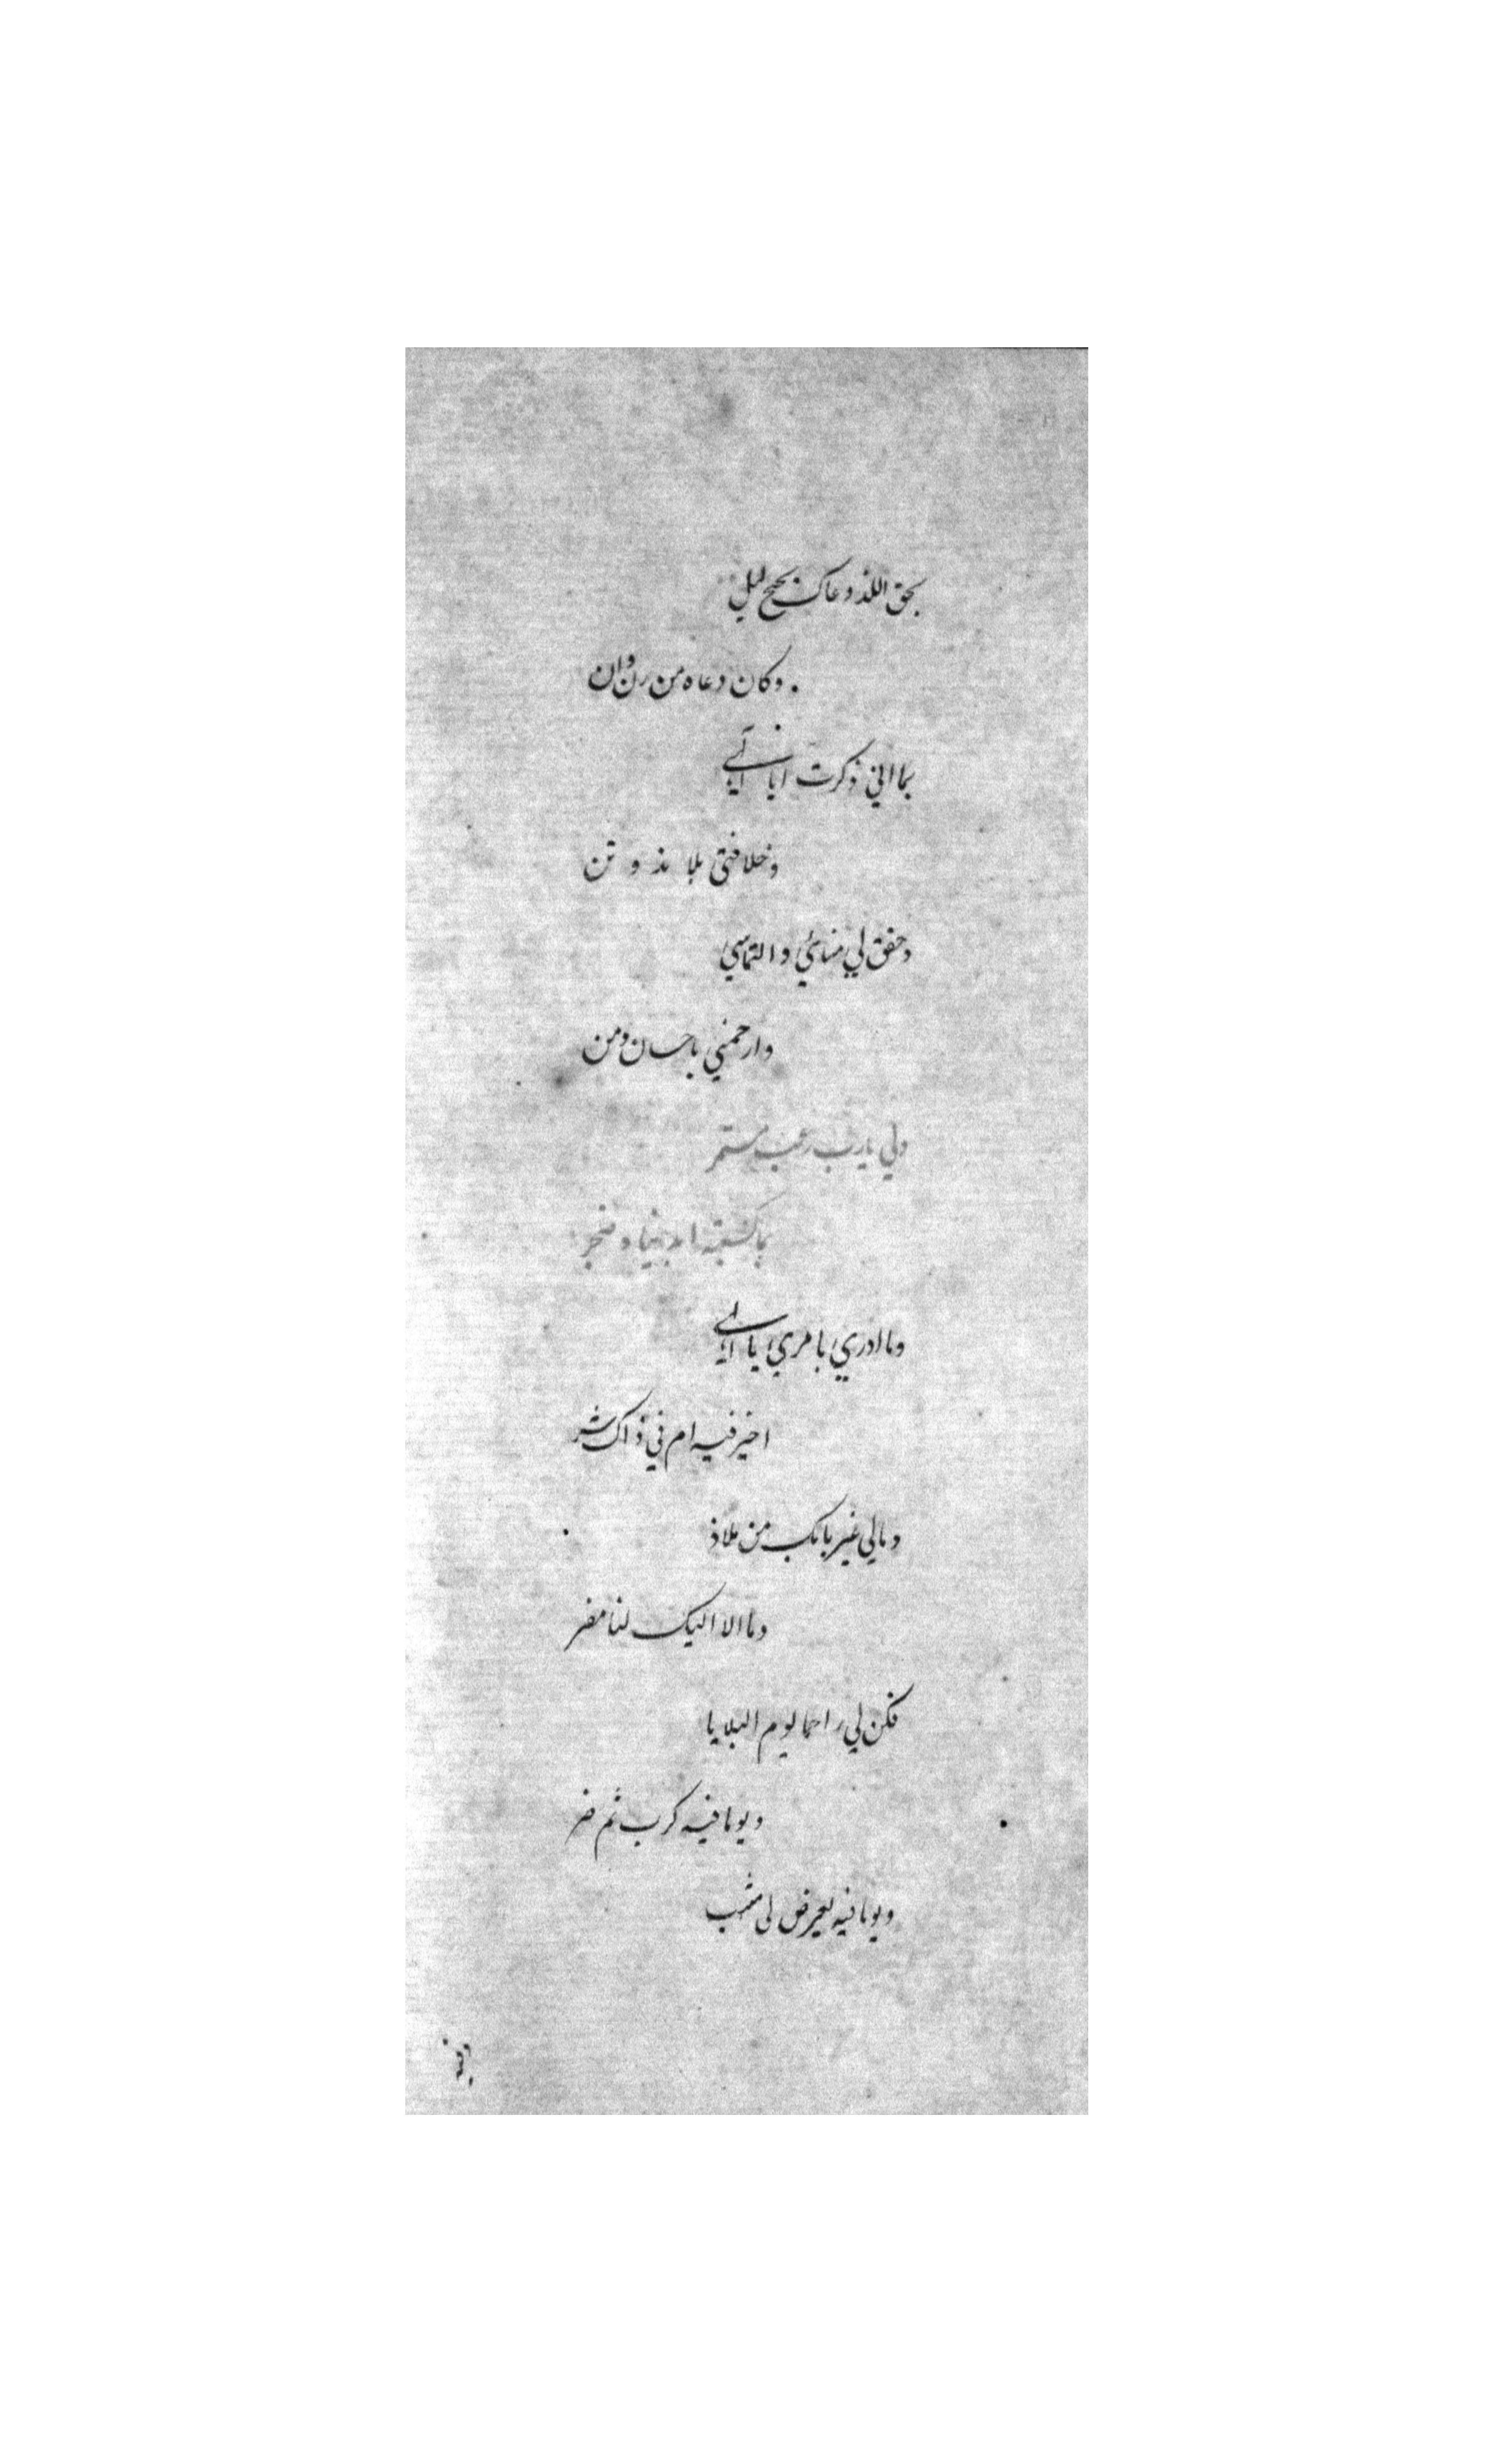 بحق اللذ دعاك بجنح ليل
وكان دعاه من رن وان
بما اني ذكرت ايا الهي
وخلافتي بلا و تن
وحقق لي منائي والتماسي
وارحمني باحسان ومن
ولي يا رب رعب مستمر
بما كسبته ايد وضجر
وما ادري بامري يا الهي
اخير فيه ام في ذاك شر
ومالي غير بابك من ملاذ
وما الا اليك لنا مفر
فكن لي راحما يوم البلايا
ويوما فيه كرب ثم ضر
ويوما فيه يعرض لي